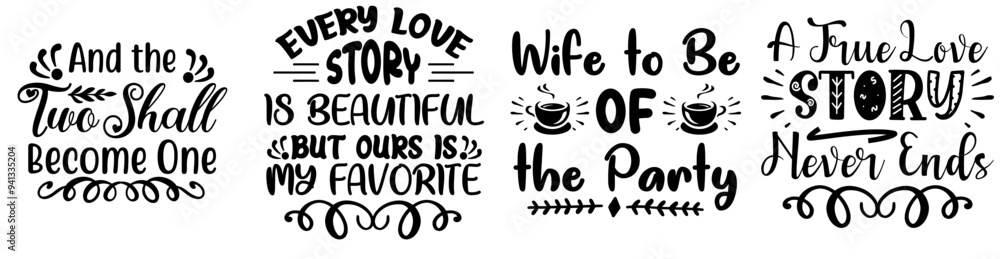 And the
Two Shall
Become One
EVERY LOVE
STORY
IS BEAUTIFUL
BUT OURS IS
MY FAVORITE
Wife to Be
OF
the Party
A True Love
STORY
Never Ends
Adobe Stock | #941335204